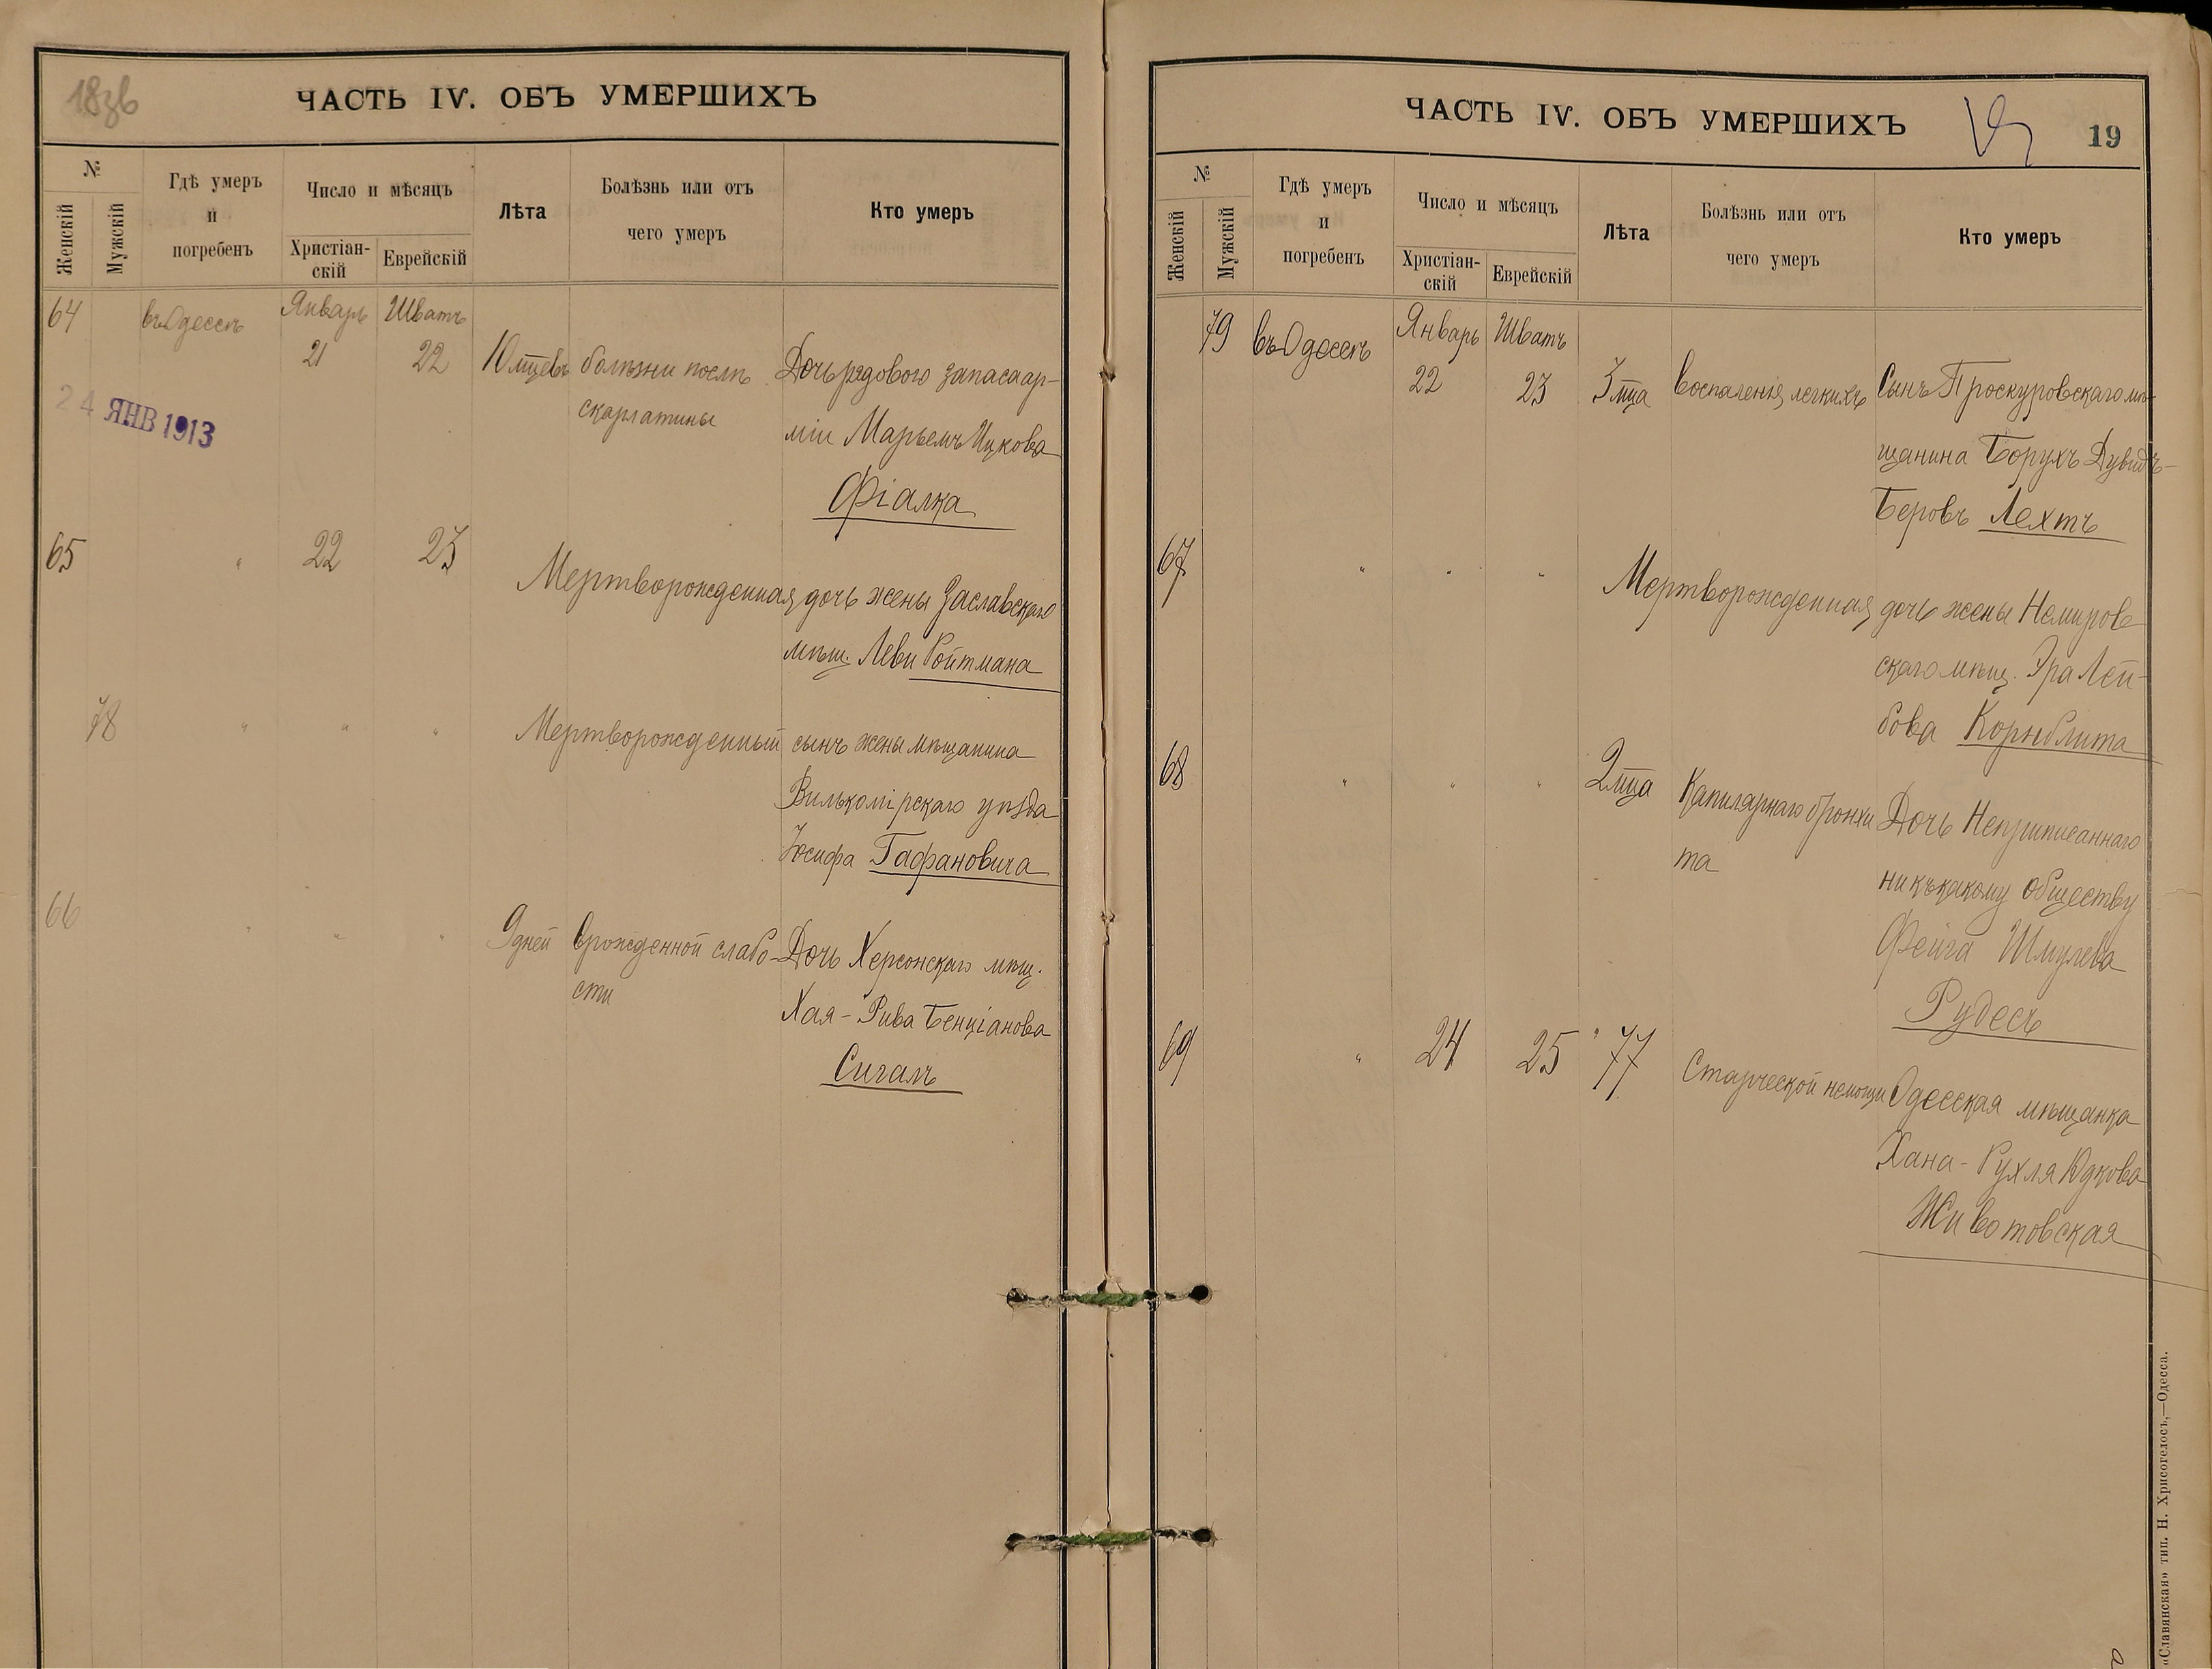 18зв
ЧАСТЬ IV. ОБЪ УМЕРШИХЪ
№
Женскій
Мужскій
Гдѣ умеръ
и
погребенъ
Число и мѣсяцъ
Христіан-
скій
Еврейскій
Лѣта
Болѣзнь или отъ
чего умеръ
Кто умеръ
64 въ Одессѣ Январь Шватъ
21 22 10 м̅цевъ болѣзни послѣ Дочь рядового запаса ар-
скарлатины міи Марьемъ Ицкова
24 ЯНВ 1913
Фіалка
65 " 22 23 Мертворожденная дочь жены Заславскаго
мѣщ. Леви Ройтмана
78 " " " Мертворожденный сынъ жены мѣщанина
Вилькомірскаго уѣзда
Іосифа Гафановича
66 " " " 9 дней врожденной слабо- Дочь Херсонскаго мѣщ.
сти
Хая-Рива Бенціанова
Сигалъ
ЧАСТЬ IV. ОБЪ УМЕРШИХЪ
19
№
Женскій
Мужскій
Гдѣ умеръ
и
погребенъ
Число и мѣсяцъ
Христіан-
скій
Еврейскій
Лѣта
Болѣзнь или отъ
чего умеръ
Кто умеръ
79 въ Одессѣ Январь Шватъ
22 23 3 м̅ца Воспаленія легкихъ Сынъ Проскуровскаго мѣ-
щанина Борухъ Дувидъ-
Беровъ Лехтъ
67 " " " Мертворожденная дочь жены Немиров
скаго мѣщ. Эра Лей-
бова Корнблита
68 " " " 2 м̅ца Капилярнаго бронхи Дочь Неприписаннаго
та
ни къ какому обществу
Фейга Шмулева
Рудесъ
69 " 24 25 77 Старческой немощи Одесская мѣщанка
Хана-Рухля Юдкова
Животовская
«Славянская» тип. Н. Хрисогелосъ,—Одесса.